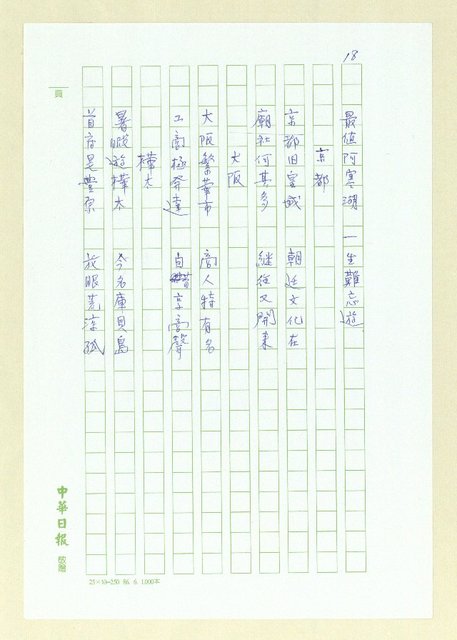 18
最值阿寒湖 一生難忘遊
京都
京都旧皇城 朝廷文化在
廟社何其多 継往又開来
大阪
大阪繁華市 商人特有名
工商極発達 自昔享高聲
樺太
暑暇遊樺太 今名庫頁島
首府是豊原 放眼荒涼孤
頁
中華日報 敬贈
25×10=250 86. 6. 1,000本